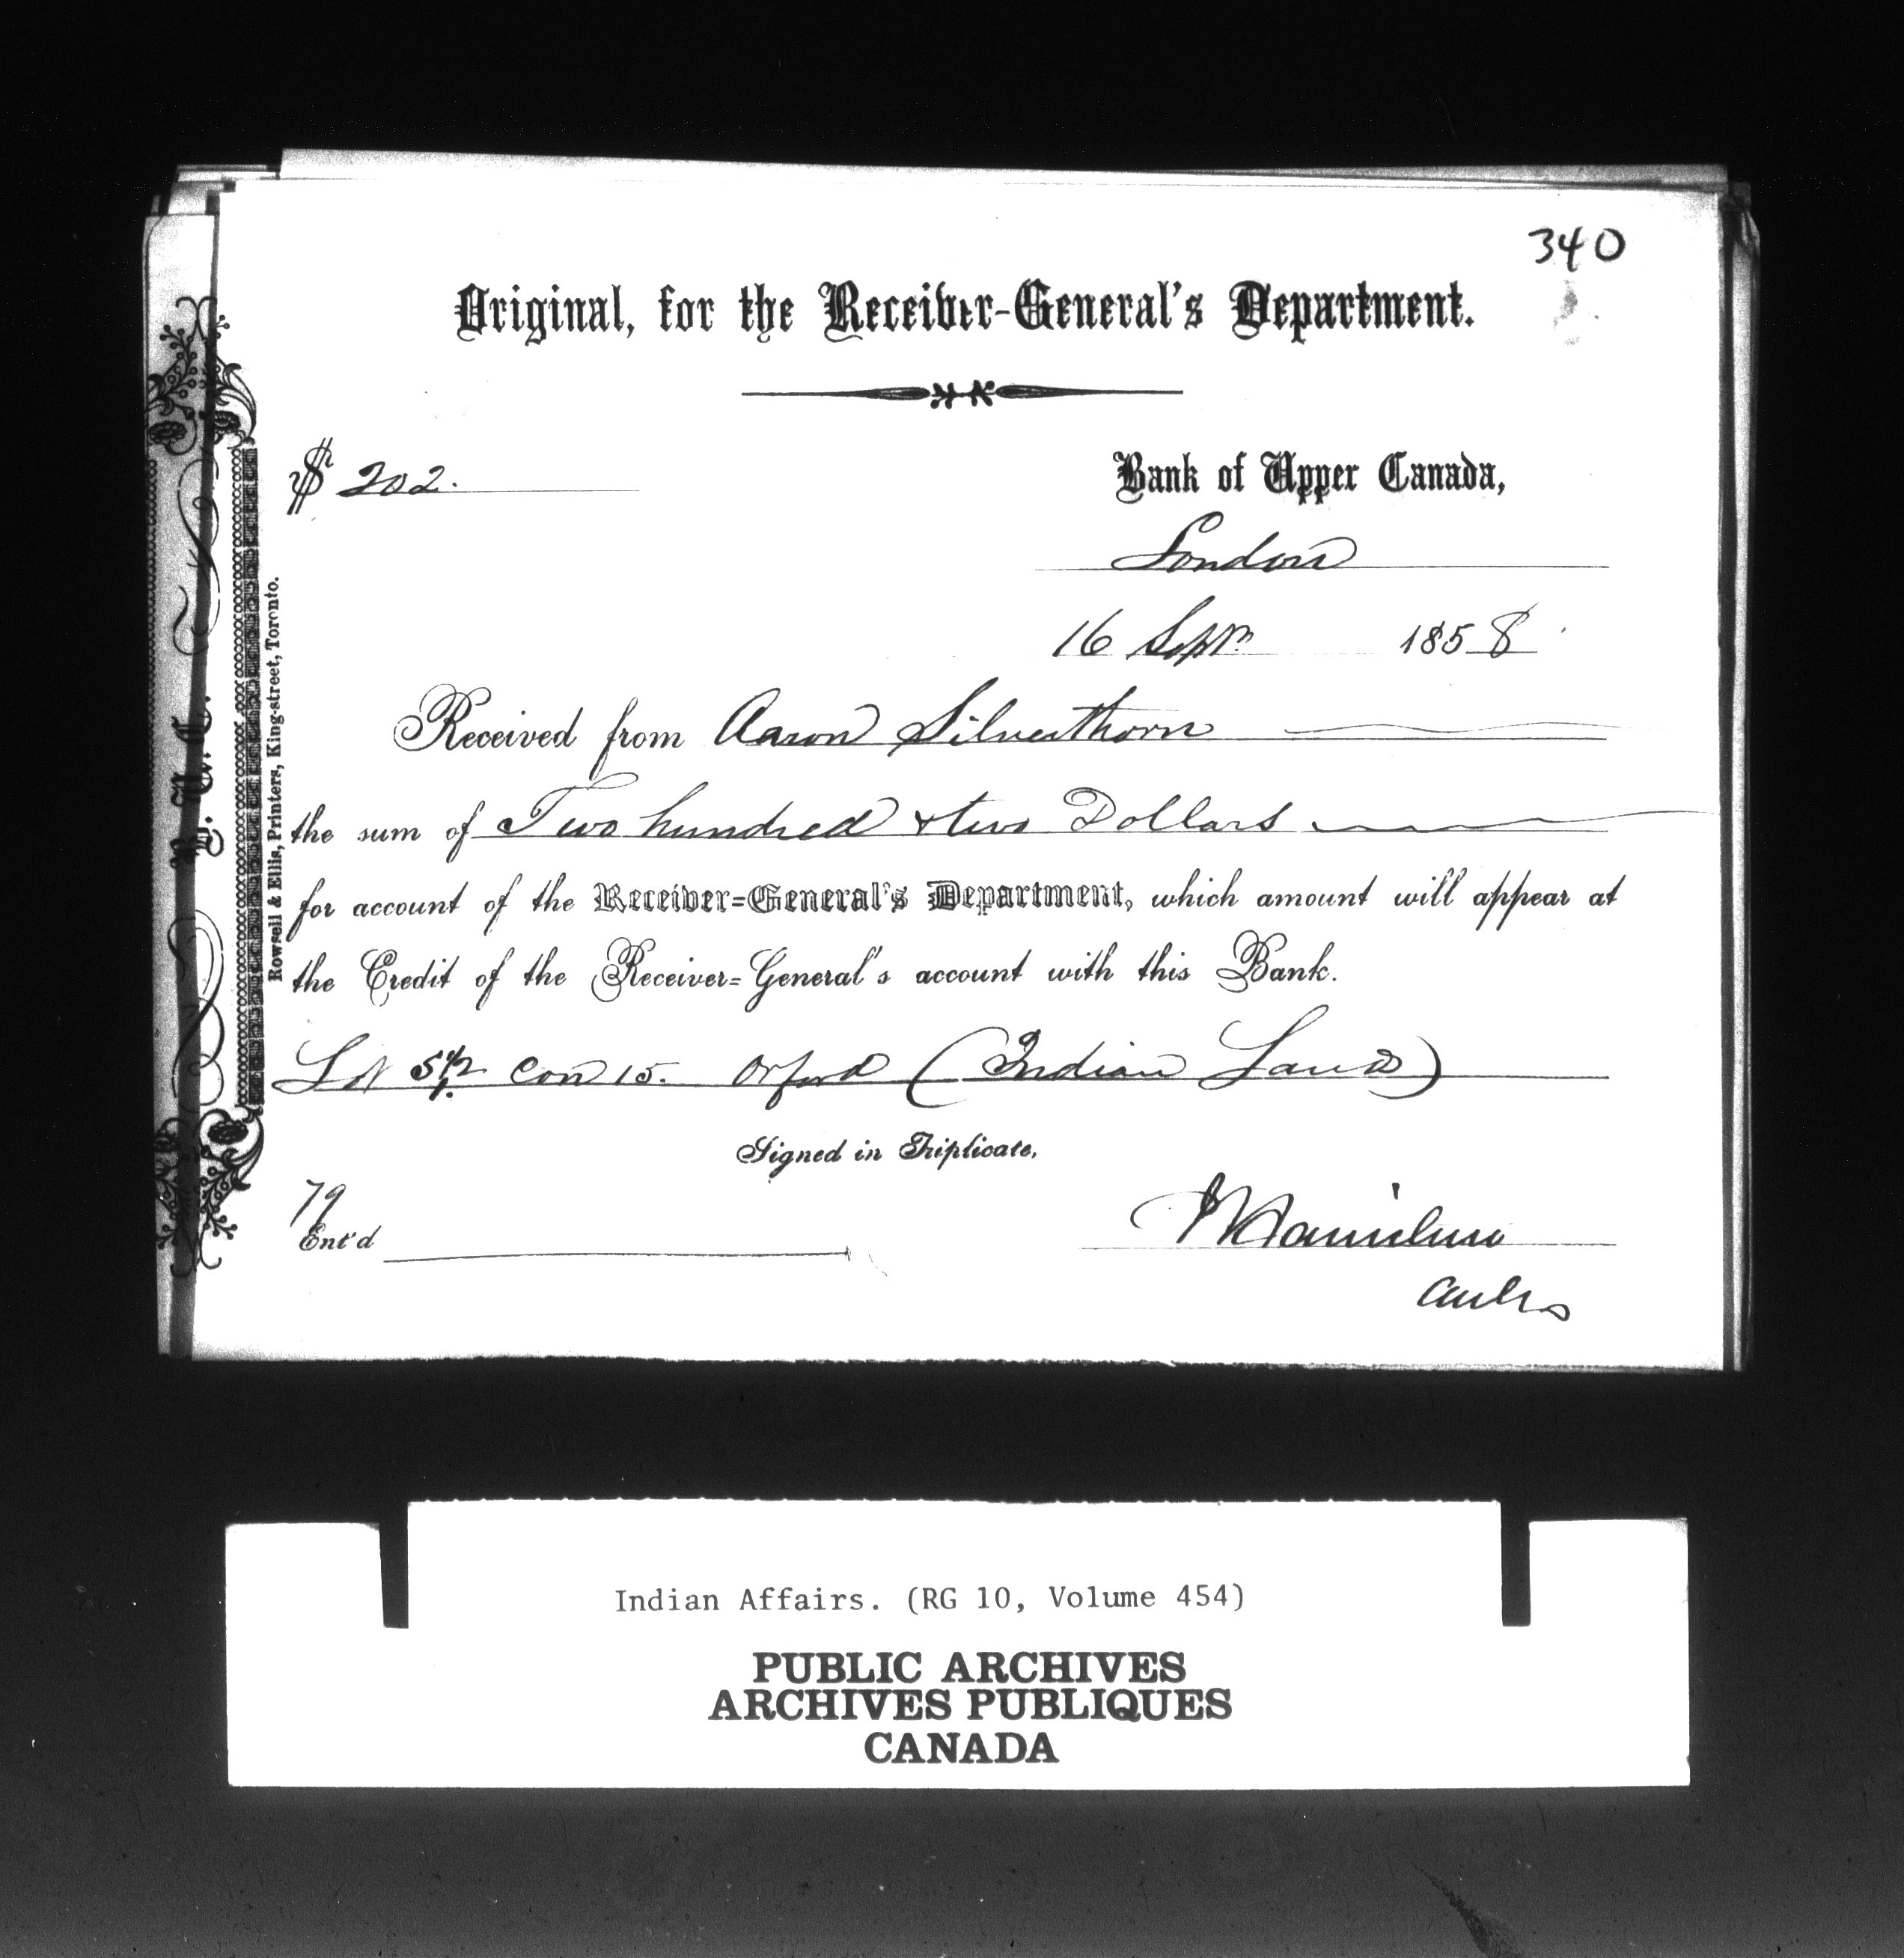 340
Original, for the Receiver-General's Department.
$ 202.
Bank of Upper Canada,
London
16 Septr 1858
Received from Aaron Silverthorn
the sum of Two hundred & two Dollars
for account of the Receiver-General's Department, which amount will appear at
the Credit of the Receiver-General's account with this Bank.
Lot S 1/2 Con 15. Orford (Indian Land)
Signed in Triplicate,
79
Ent'd
Rowsell & Ellis, Printers, King-street, Toronto.
Indian Affairs. (RG 10, Volume 454)
PUBLIC ARCHIVES
ARCHIVES PUBLIQUES
CANADA